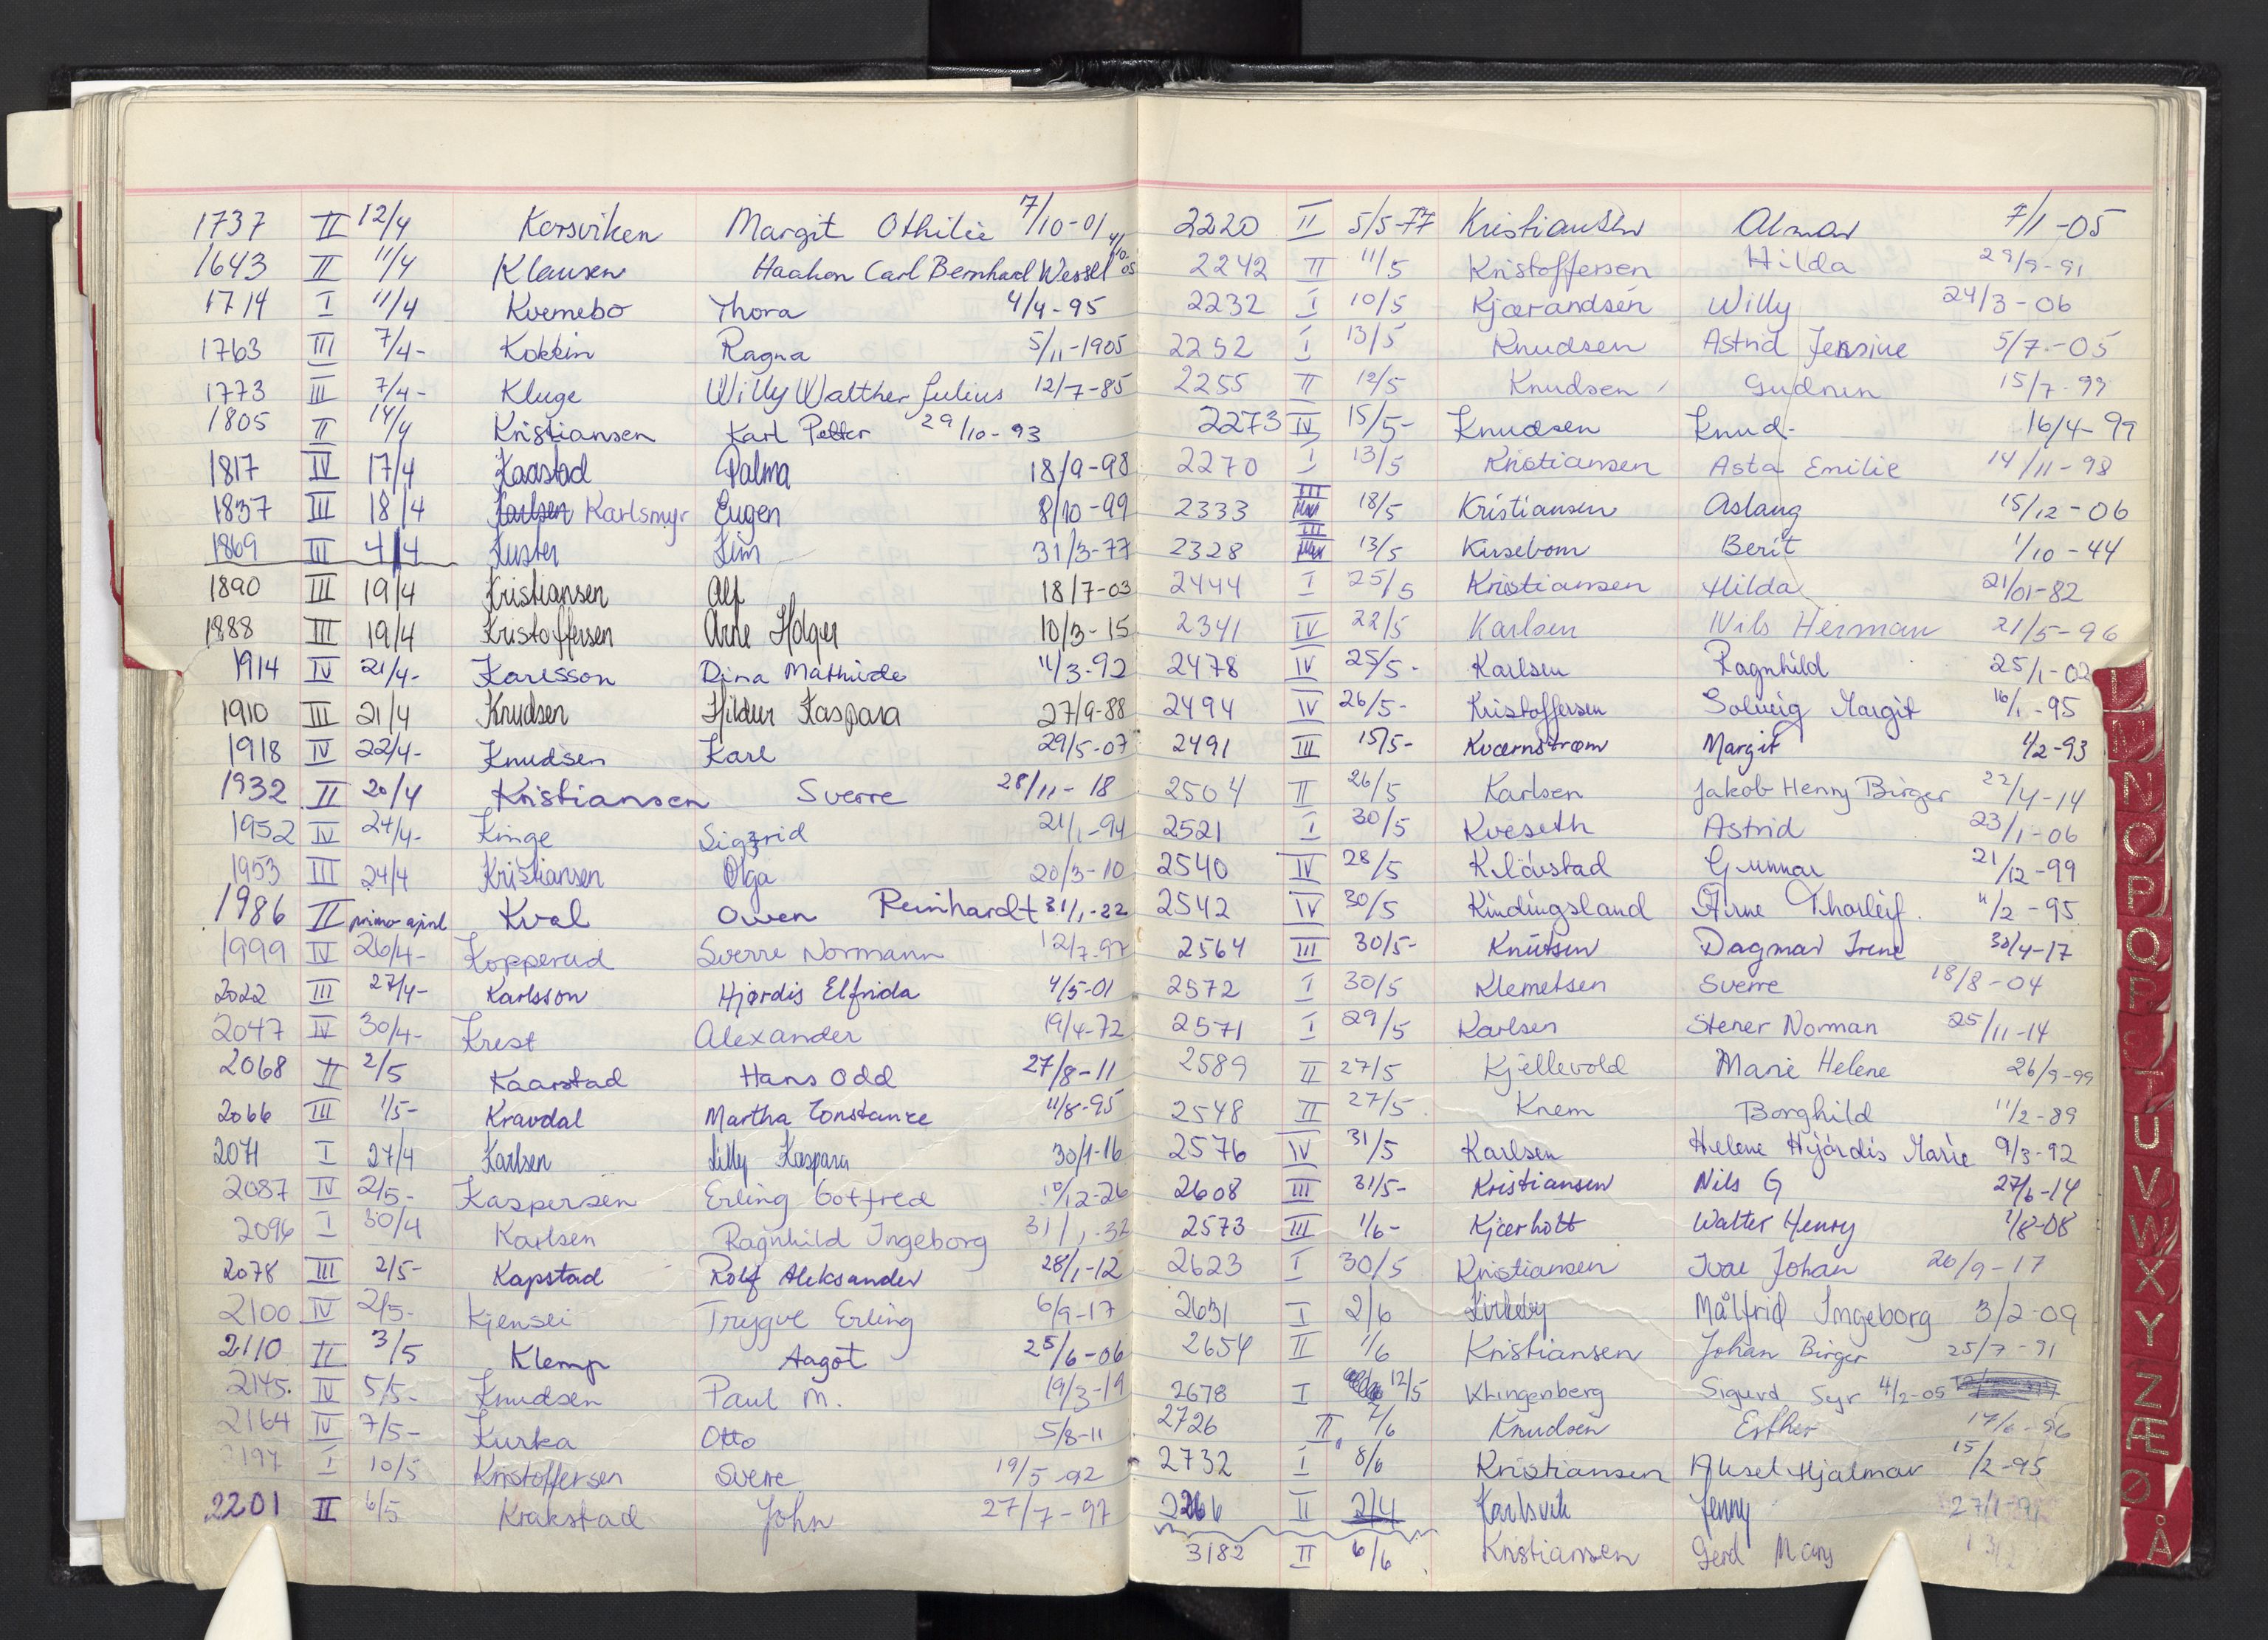 1737 II 12/4 Korsviken Margit Othilie 7/10-01
1643 II 11/4 Klausen Haakon Carl Bernhard Wessel 4/10-05
1714 I 11/4 Kvernebo Thora 4/4-95
1763 III 7/4- Kokkin Ragna 5/11-1905
1773 III 7/4- Kluge Willy Walther Julius 12/7-85
1805 II 14/4 Kristiansen Karl Petter 29/10-93
1817 IV 17/4 Kaastad Palma 18/9-98
1837 III 18/4 Karlsen Karlsmyr Eugen 8/10-99
1869 III 4/4 Kuster Kim 31/3-77
1890 III 19/4 Kristiansen Alf 18/7-03
1888 III 19/4 Kristoffersen Arne Holger 10/3-15
1914 IV 21/4- Karlsson Dina Mathilde 11/3-92
1910 III 21/4 Knudsen Hildur Kaspara 27/9-88
1918 IV 22/4- Knudsen Karl 29/5-07
1932 II 20/4 Kristiansen Sverre 28/11-18
1952 IV 24/4- Kinge Sigfrid 21/1-94
1953 III 24/4 Kristiansen Olga 20/3-10
1986 II primo april Kval Owen Reinhardt 31/1-22
1999 IV 26/4- Kopperud Sverre Normann 12/7-97
2022 III 27/4- Karlsson Hjørdis Elfrida 4/5-01
2047 IV 30/4- Krest Alexander 19/4-72
2068 II 2/5 Kaarstad Hans Odd 27/8-11
2066 III 1/5- Kravdal Martha Constance 11/8-95
2071 I 27/4 Karlsen Lilly Kaspara 30/1-16
2087 IV 2/5- Kaspersen Erling Gotfred 10/12-26
2096 I 30/4 Karlsen Ragnhild Ingeborg 31/1-32
2078 III 2/5- Kapstad Rolf Aleksander 28/1-12
2100 IV 2/5- Kjensei Trygve Erling 6/9-17
2110 II 3/5 Klemp Aagot 25/6-06
2145. IV 5/5- Knudsen Paul M. 19/3-19
2164 IV 7/5- Kurka Otto 5/8-11
2197 I 10/5 Kristoffersen Sverre 19/5-92
2201 II 6/5 Krakstad John 27/7-97
2220 II 5/5-77 Kristiansen Almar 7/1-05
2242 II 11/5 Kristoffersen Hilda 29/9-91
2232 I 10/5 Kjærandsen Willy 24/3-06
2252 I 13/5 Knudsen Astrid Jensine 5/7-05
2255 II 12/5 Knudsen Gudrun 15/7-99
2273 IV 15/5- Knudsen Knud- 16/4-99
2270 I 13/5 Kristiansen Asta Emilie 14/11-98
2333 III 18/5 Kristiansen Aslaug 15/12-06
2328 III 13/5 Kirsebom Berit 1/10-44
2444 I 25/5 Kristiansen Hilda 21/01-82
2341 IV 22/5 Karlsen Nils Herman 21/5-96
2478 IV 25/5- Karlsen Ragnhild 25/1-02
2494 IV 26/5- Kristoffersen Solveig Margit 16/1-95
2491 III 15/5- Kværnstrøm Margit 1/2-93
2504 II 26/5 Karlsen Jakob Henny Birger 22/4-14
2521 I 30/5 Kveseth Astrid 23/1-06
2540 IV 28/5 Kløvstad Gunnar 21/12-99
2542 IV 30/5 Kindingsland Arne Thorleif. 11/2-95
2564 III 30/5- Knutsen Dagmar Irene 30/4-17
2572 I 30/5 Klemetsen Sverre 18/8-04
2571 I 29/5 Karlsen Stener Norman 25/11-14
2589 II 27/5 Kjellevold Marie Helene 26/9-99
2548 II 27/5 Knem Borghild 11/2-89
2576 IV 31/5 Karlsen Helene Hjørdis Marie 9/3-92
2608 III 31/5- Kristiansen Nils G 27/6-14
2573 III 1/6- Kjærholt Walter Henry 1/8-08
2623 I 30/5 Kristiansen Ivar Johan 20/9-17
2631 I 2/6 Kirkeby Målfrid Ingeborg 3/2-09
2654 II 1/6 Kristiansen Johan Birger 25/7-91
2678 I 12/5 Klingenberg Sigurd Syr 4/2-05
2726 II 7/6 Knudsen Esther 17/6-96
2732 I 8/6 Kristiansen Aksel Hjalmar 15/2-95
II 2/4 Karlsvik Jenny 27/1-91
3182 II 6/6 Kristiansen Gerd Mary
L
M
N
O
P
Q
R
S
T
U
V
W
X
Y
Z
Æ
Ø
Å